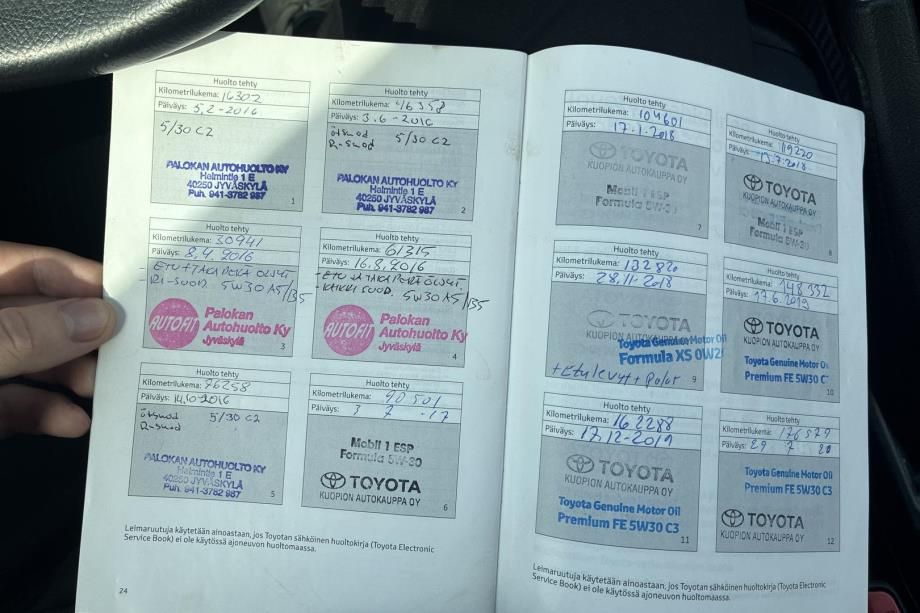 Huolto tehty
Kilometrilukema: 16302
Päiväys: 5.2-2016
5/30 C2
PALOKAN AUTOHUOLTO KY
Helmintie 1 E
40250 JYVÄSKYLÄ
Puh. 941-3782 987
1
Huolto tehty
Kilometrilukema: 46358
Päiväys: 3.6-2016
5/30 C2
PALOKAN AUTOHUOLTO KY
Helmintie 1 E
40250 JYVÄSKYLÄ
Puh. 941-3782 987
2
Huolto tehty
Kilometrilukema: 30941
Päiväys: 8.4.2016
5W30 A5/B5
AUTOFIT
Palokan
Autohuolto Ky
Jyväskylä
3
Huolto tehty
Kilometrilukema: 61315
Päiväys: 16.8.2016
5W30 A5/B5
AUTOFIT
Palokan
Autohuolto Ky
Jyväskylä
4
Huolto tehty
Kilometrilukema: 76258
Päiväys: 14.10-2016
5/30 C2
PALOKAN AUTOHUOLTO KY
Helmintie 1 E
40250 JYVÄSKYLÄ
Puh. 941-3782 987
5
Huolto tehty
Kilometrilukema: 90501
Päiväys: 3 7 -17
Mobil 1 ESP
Formula 5W-30
TOYOTA
KUOPION AUTOKAUPPA OY
6
Leimaruutuja käytetään ainoastaan, jos Toyotan sähköinen huoltokirja (Toyota Electronic
Service Book) ei ole käytössä ajoneuvon huoltomaassa.
24
Huolto tehty
Kilometrilukema: 104601
Päiväys: 17.1.2018
TOYOTA
KUOPION AUTOKAUPPA OY
Mobil 1 ESP
Formula 5W-30
7
Huolto tehty
Kilometrilukema: 119220
Päiväys: 13.7.2018
TOYOTA
KUOPION AUTOKAUPPA OY
Mobil 1 ESP
Formula 5W-30
8
Huolto tehty
Kilometrilukema: 132820
Päiväys: 28.11-2018
TOYOTA
KUOPION AUTOKAUPPA OY
Toyota Genuine Motor Oil
Formula XS 0W20
+Etulevyt + Palat
9
Huolto tehty
Kilometrilukema: 148332
Päiväys: 17.6.2019
TOYOTA
KUOPION AUTOKAUPPA OY
Toyota Genuine Motor O
Premium FE 5W30 C
10
Huolto tehty
Kilometrilukema: 162288
Päiväys: 17.12-2019
TOYOTA
KUOPION AUTOKAUPPA OY
Toyota Genuine Motor Oil
Premium FE 5W30 C3
11
Huolto tehty
Kilometrilukema: 176579
Päiväys: 29 7 20
Toyota Genuine Motor Oil
Premium FE 5W30 C3
TOYOTA
KUOPION AUTOKAUPPA OY
12
Leimaruutuja käytetään ainoastaan, jos Toyotan sähköinen huoltokirja (Toyota Electronic
Service Book) ei ole käytössä ajoneuvon huoltomaassa.